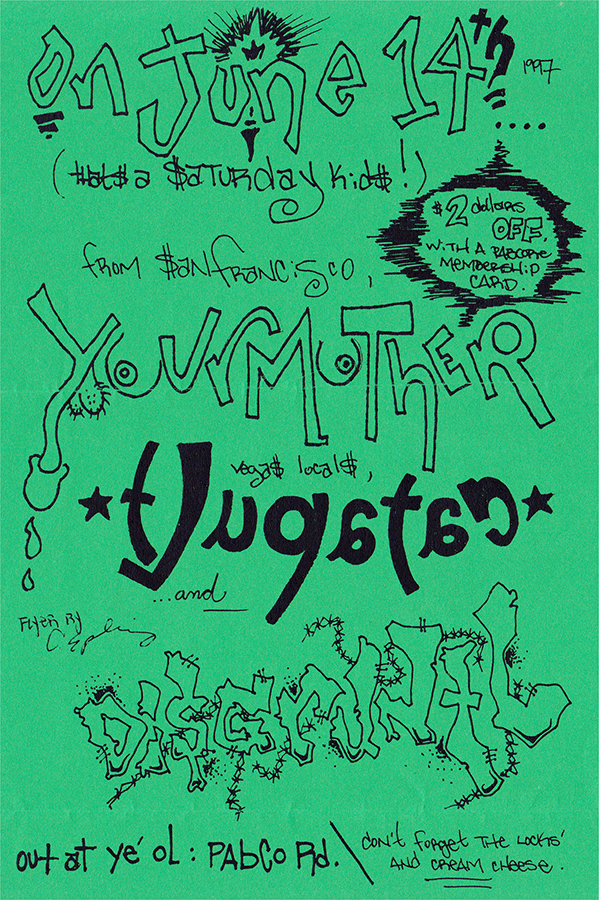 on June 14th 1997
....
(that$ a $aturday kid$!)
$2 dollars
OFF.
with a Pabcore
membership
card.
from $an Franci$co,
Your Mother
vega$ local$,
★ catapult ★
...and
Flyer By
out at ye' ol: Pabco Rd.
don't forget the locks'
and cream cheese.